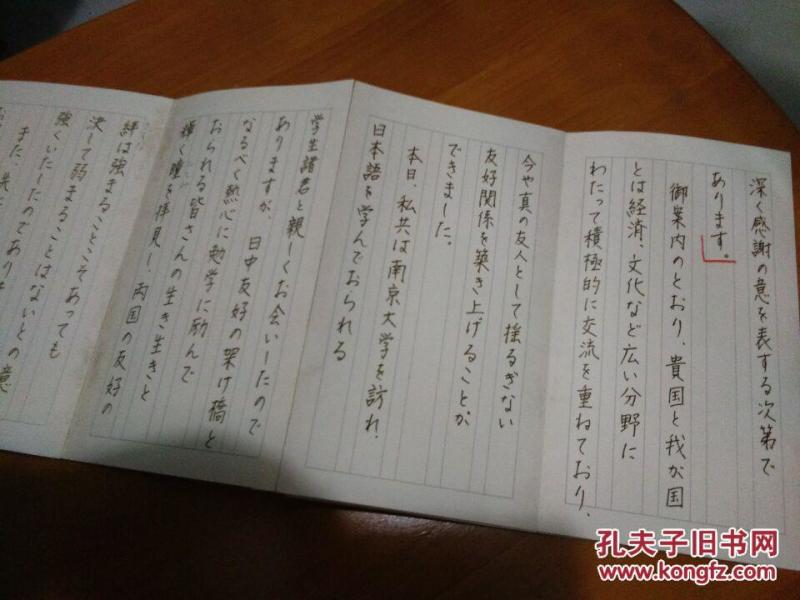 深く感謝の意を表する次第で
あります。
御案内のとおり、貴国と我が国
とは経済、文化など広い分野に
わたって積極的に交流を重ねており、
今や真の友人として揺るぎない
友好関係を築き上げることが
できました。
本日、私共は南京大学を訪れ、
日本語を学んでおられる
学生諸君と親しくお会いしたので
ありますが、日中友好の架け橋と
なるべく熱心に勉学に励んで
おられる皆さんの生き生きと
輝く瞳を拝見し、両国の友好の
絆は強まることこそあっても
決して弱まることはないとの意
強くいたしたのであります
また、
孔夫子旧书网
www.kongfz.com